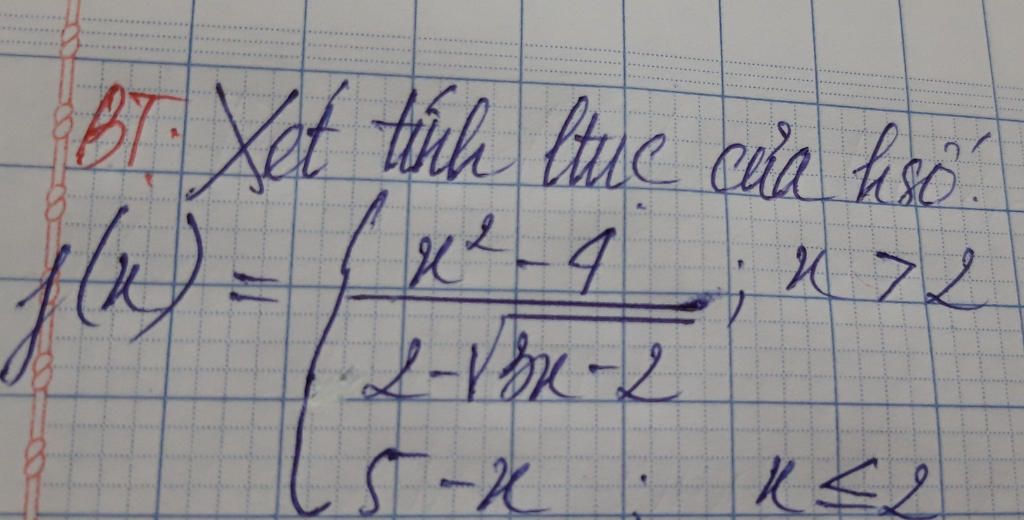 BT. Xét tính ltuc của hsố:
f(x) = { x² - 4 / 2 - √3x - 2 ; x > 2
5 - x ; x ≤ 2